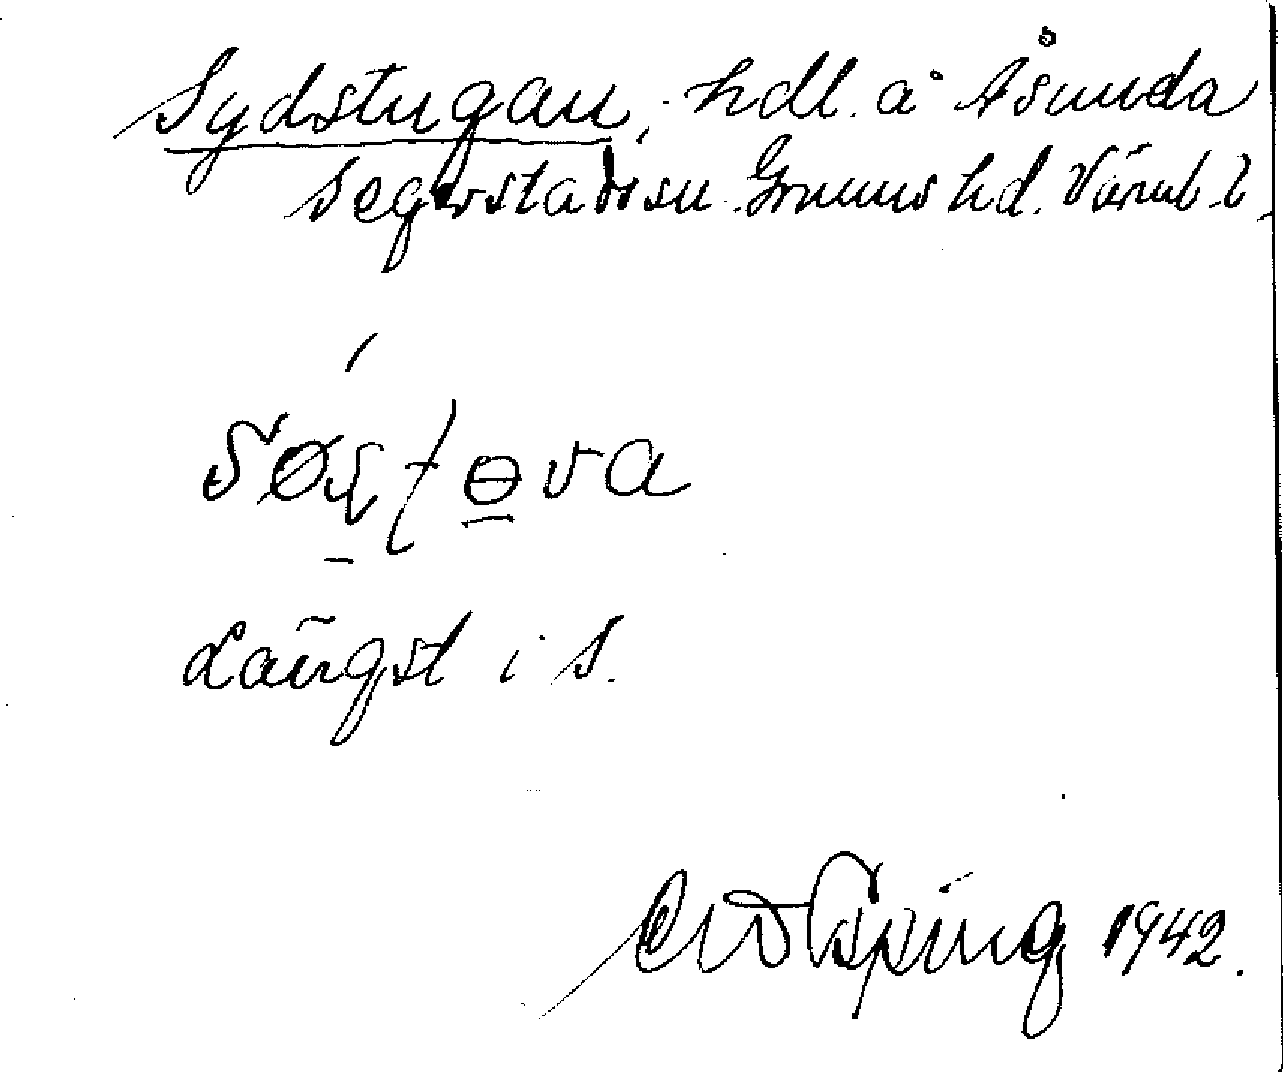 Sydstugan, hdl. å Åsunda
Segerstads sn. Grums hd. Värml. l.
søʂʈɵva
Längst i S.
1942.